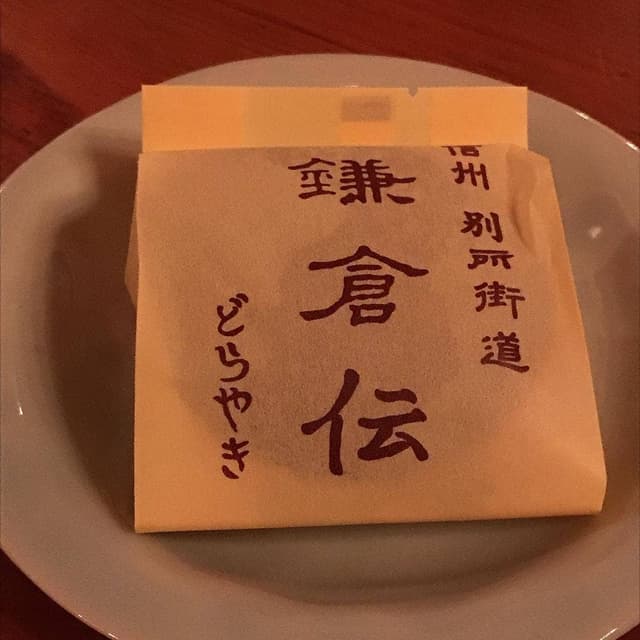 信州 別所街道
鎌倉伝
どらやき